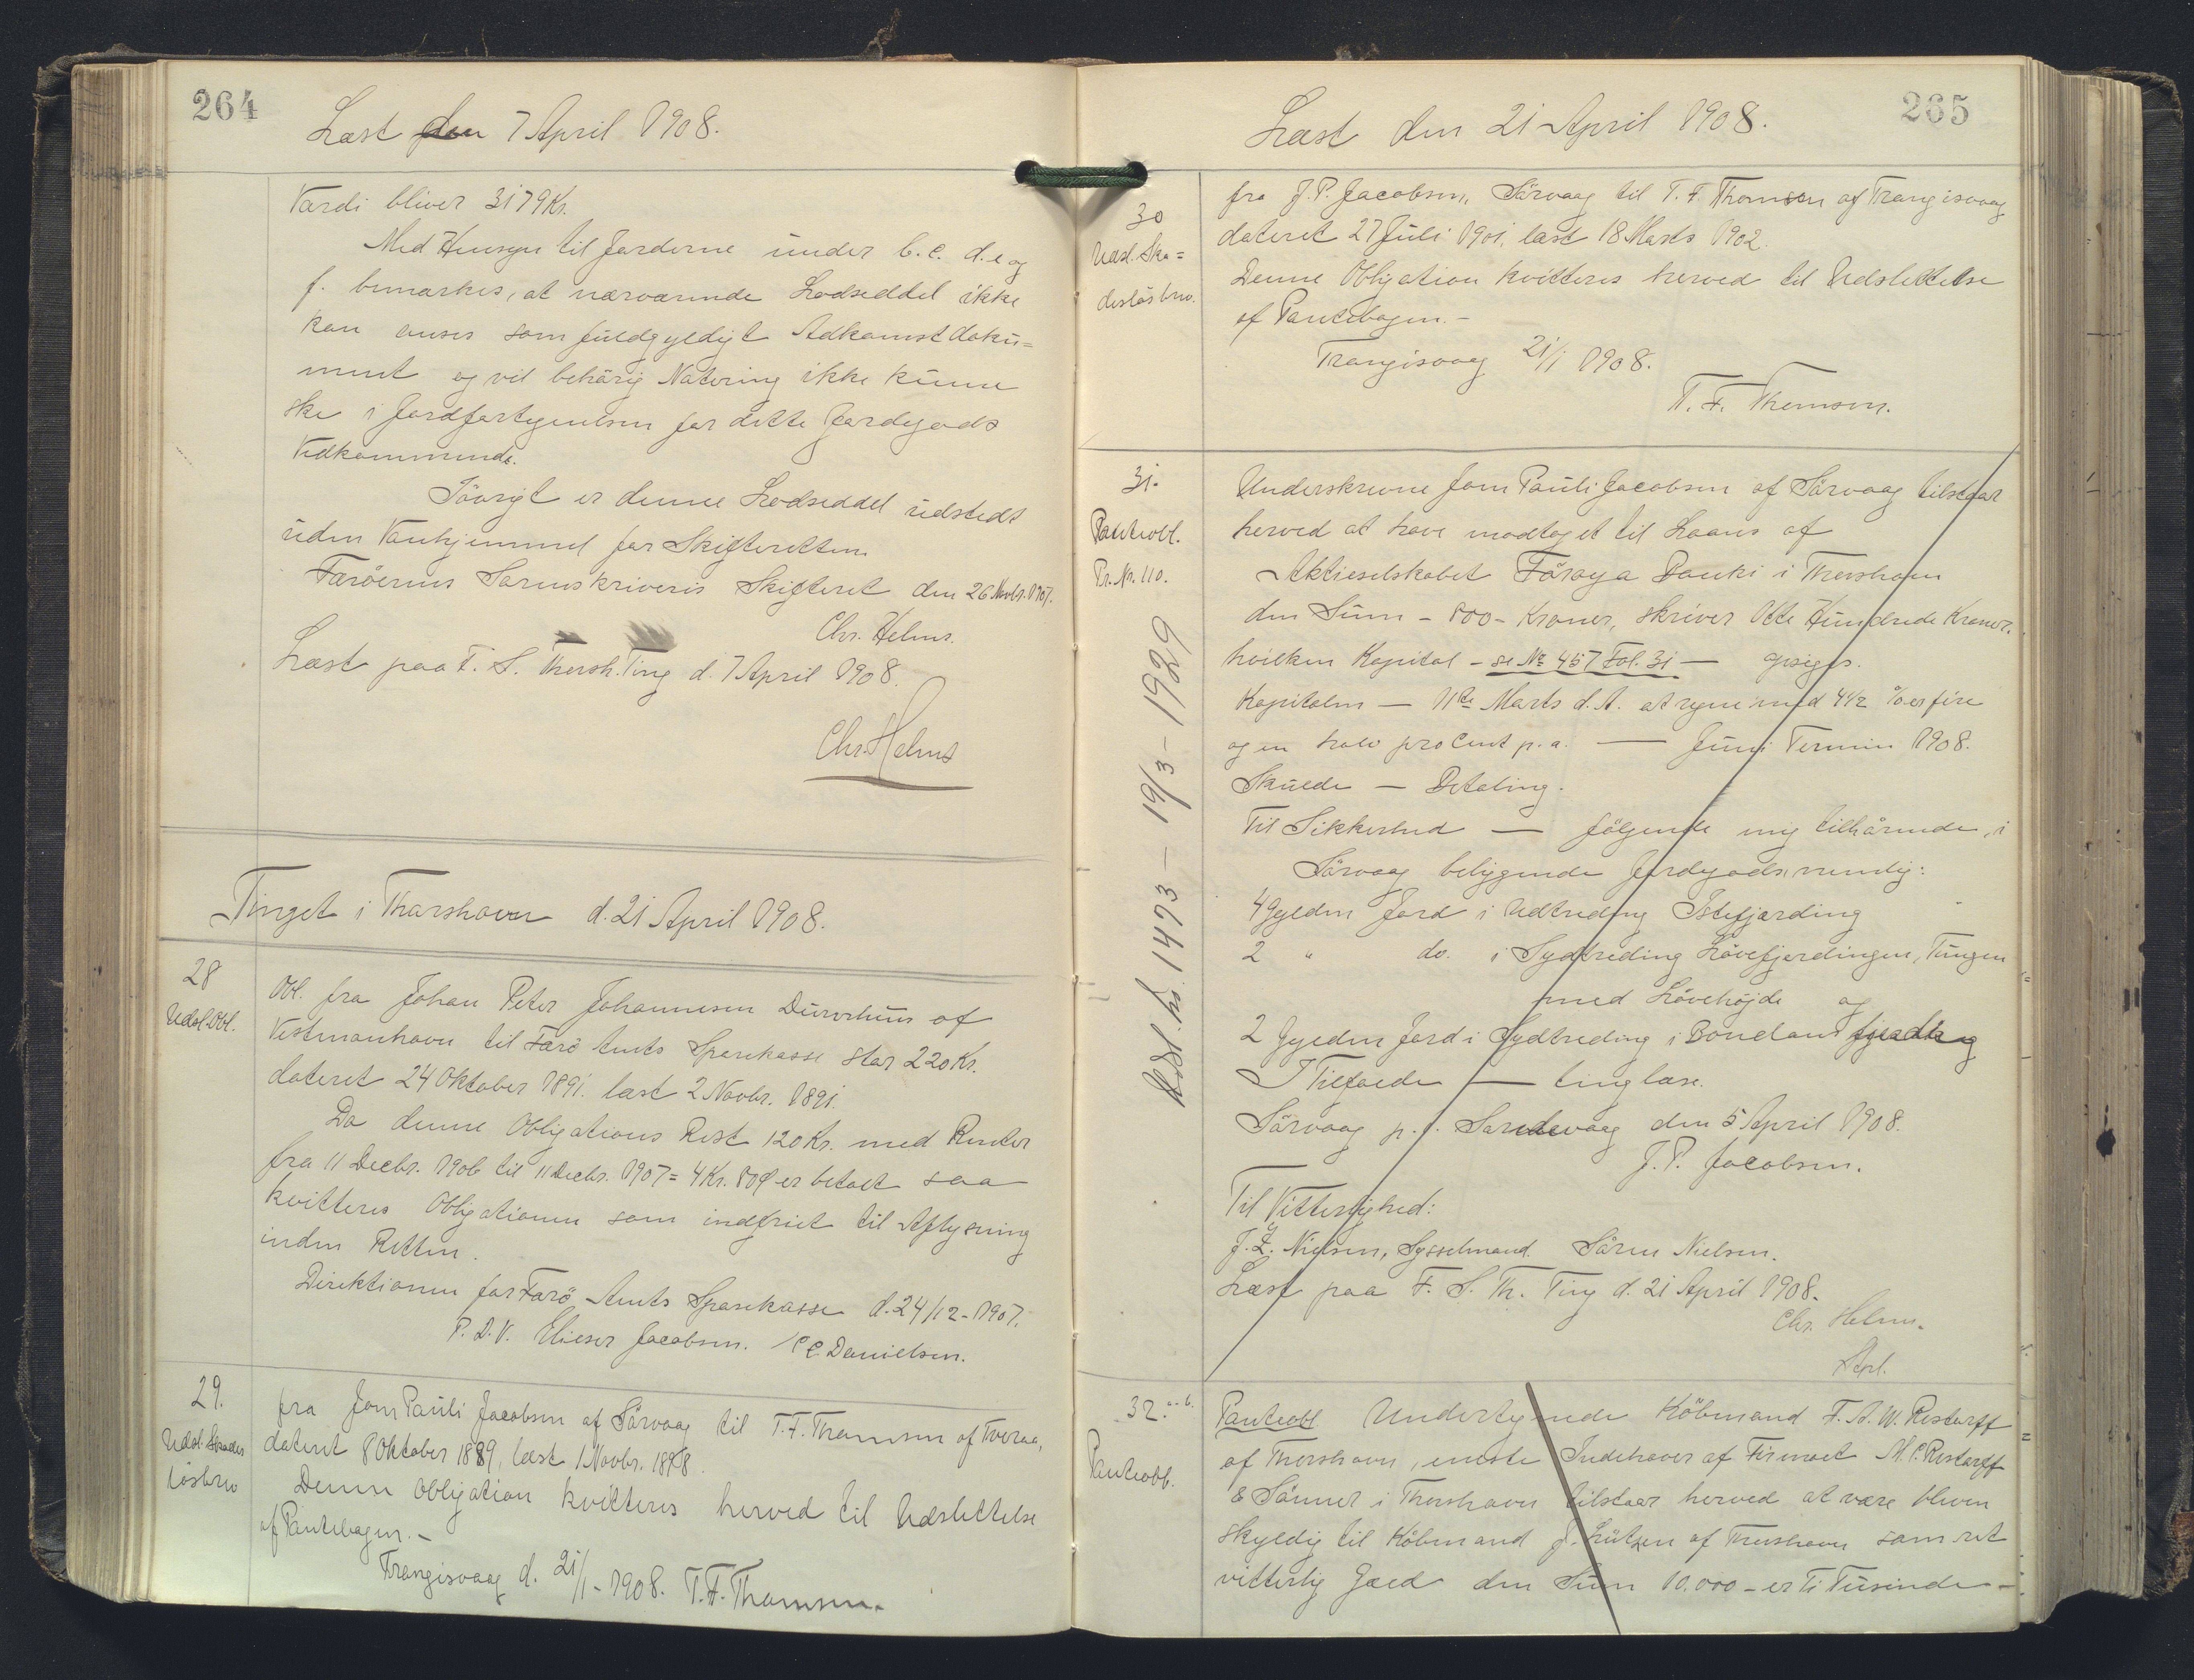 264
Læst den 7 April 1908.
Værdi bliver 3179 Kr.
Med Hensyn til Jorderne under b. c. d. e og
f. bemærkes, at nærværende Lodseddel ikke
kan anses som fuldgyldigt Adkomstdoku=
ment og vil behörig Notering ikke kunne
ske i Jordfortegnelsen for dette Jordegods
Vedkommende.
Iövrigt er denne Lodseddel udstedt
uden Vanhjemmel for Skifteretten.
Færöernes Sorenskriveris Skifteret den 26 Novbr. 1907.
Chr. Helms.
Læst paa F. S. Thorsh. Ting d. 7 April 1908.
Chr. Helms
Tinget i Thorshavn d. 21 April 1908.
28
Udsl. Obl.
Obl. fra Johan Peter Johannesen Dúvuhús af
Vestmanhavn til Færö Amts Sparekasse stor 220 Kr.
dateret 24 Oktober 1891. læst 2 Novbr. 1891.
Da denne Obligations Rest 120 Kr. med Renter
fra 11 Decbr. 1906 til 11 Decbr. 1907 = 4 Kr. 80 Ø er betalt saa
kvitteres Obligationen som indfriet til Aflysning
inden Retten.
Direktionen for Færö Amts Sparekasse d. 24/12-1907.
P. D. V. Elieser Jacobsen. / C C Danielsen.
29.
Udsl. Skades
lösbrev
fra Joen Pauli Jacobsen af Sörvaag til T. F. Thomsen af Tveraa,
dateret 8 Oktober 1889, læst 1 Novbr. 1898.
Denne Obligation kvitteres herved til Udslettelse
af Pantebogen.-
Trangisvaag d. 21/1-1908. T. F. Thomsen.
265
Læst den 21 April 1908.
30
Udsl. Ska=
deslösbrev.
fra J. P. Jacobsen, Sörvaag til T. F. Thomsen af Trangisvaag
dateret 27 Juli 1901, læst 18 Marts 1902.
Denne Obligation kvitteres herved til Udslettelse
af Pantebogen.-
Trangisvaag 21/1 1908.
T. F. Thomsen.
31.
Panteobl.
Pr. Nr. 110.
Udsl. h. 1473 - 19/3 - 1929
Underskrevne Joen Pauli Jacobsen af Sörvaag tilstaar
herved at have modtaget til Laans af
Aktieselskabet Föroya Banki i Thorshavn
den Sum - 800 - Kroner, skriver Otte Hundrede Kroner.
hvilken Kapital - se № 457 Fol. 31 — opsiges.
Kapitalen — 11te Marts d. A. at regne med 4 1/2 % er fire
og en halv procent p. a. — Juni Termin 1908.
Skulde — Betaling.
Til Sikkerhed — fölgende mig tilhörende, i
Sörvaag beliggende Jordegods, nemlig:
4 Gylden Jord i Udtreding Istefjerding
2 " do. i Sydtreding Lövefjerdingen, Tungen
med Lövehöjde og
2 Gylden Jord i Sydtreding i Bondans fjerding
I Tilfælde — tinglæse.
Sörvaag p. t. Sandevaag den 5 April 1908.
J. P. Jacobsen.
Til Vitterlighed:
J. Z. Nielsen, Sysselmand. Sören Nielsen.
Læst paa F. S. Th. Ting d. 21 April 1908.
Chr. Helms.
32.
Panteobl.
Panteobl Undertegnede Köbmand F. A. W. Restorff
af Thorshavn, eneste Indehaver af Firmaet M. C. Restorff
& Sönner i Thorshavn tilstaar herved at være bleven
skyldig til Köbmand J. Lützen af Thorshavn som ret
vitterlig Gæld den Sum 10.000 - er Ti Tusinde -